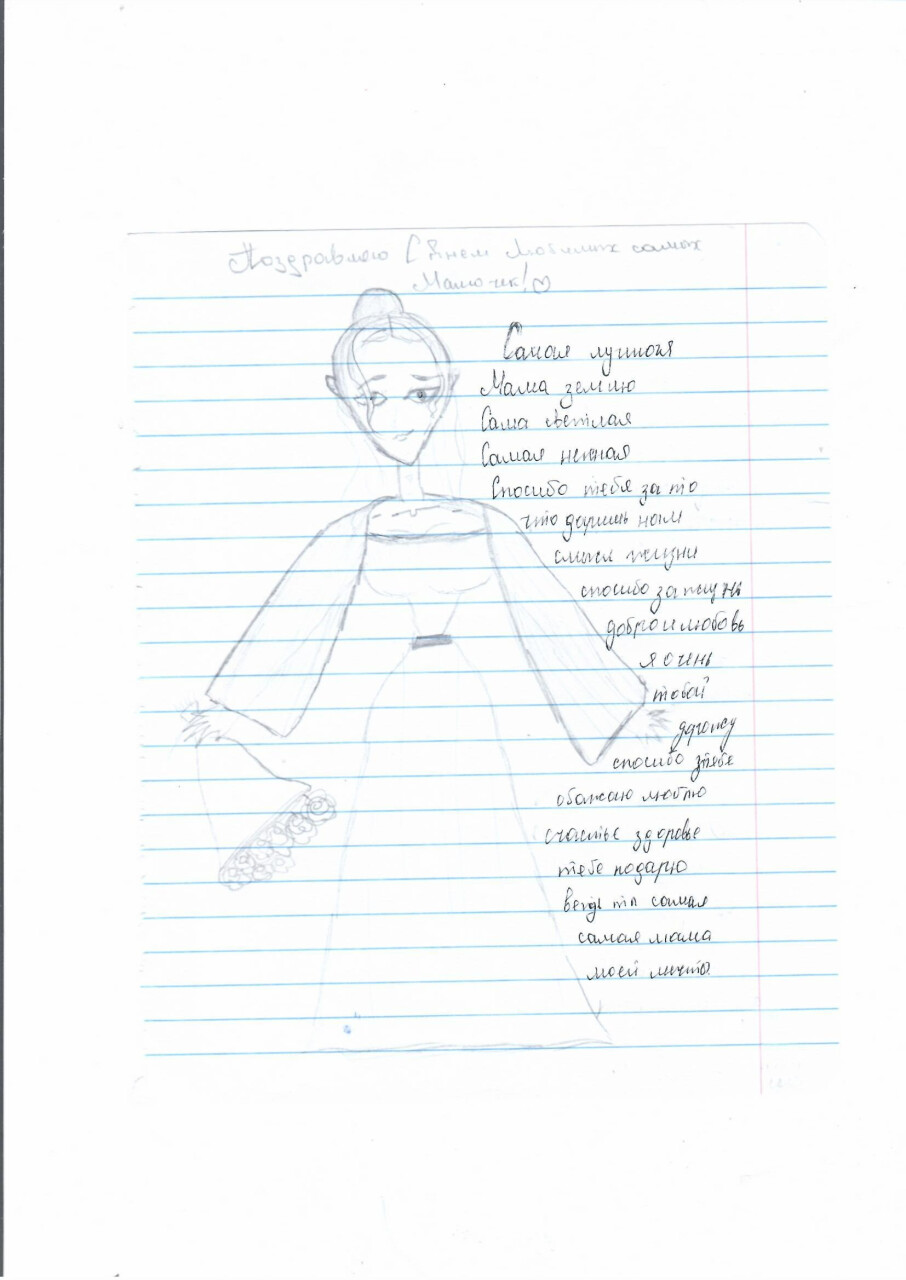 Поздравляю С Днем Любимых самых
Мамочек!
Самая лучшая
Мама землю
Сама светлая
Самая нежная
Спосибо тебя за то
что даришь нам
смысл жизни
спосибо за жизнь
добро и любовь
я очень
тобой
дорожу
спосибо
обажаю люблю
счастье здоровье
тебе подарю
ведь ты самая
самая мама
моей мечты